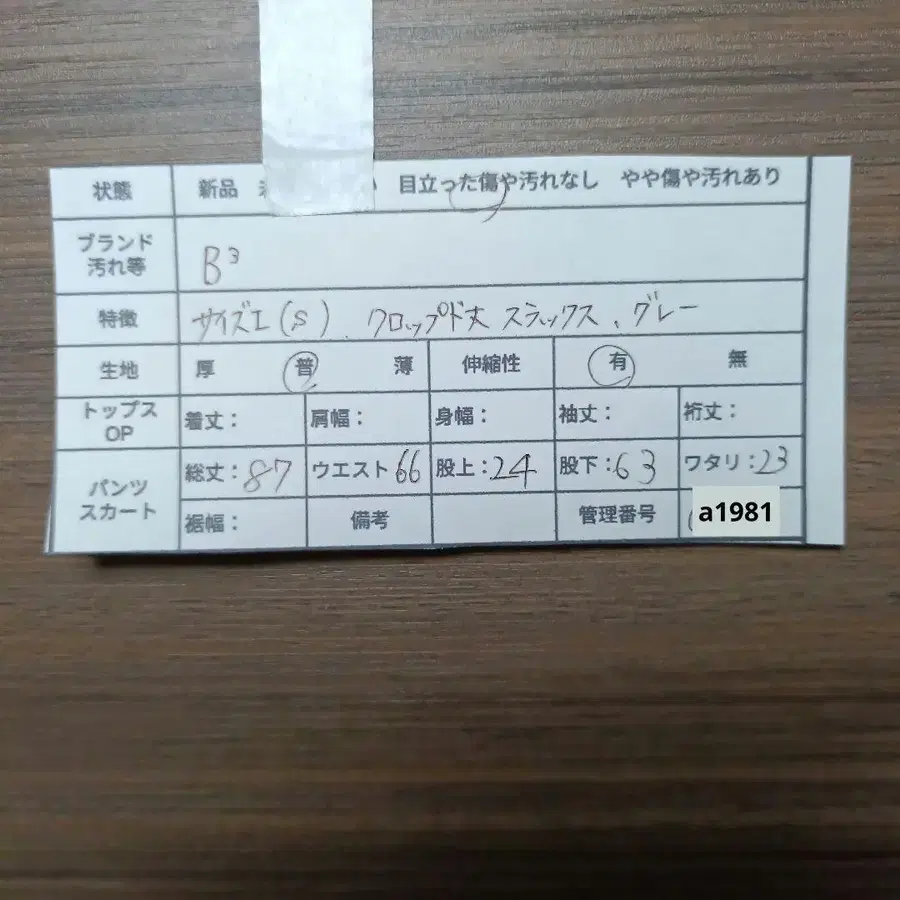 状態 新品 目立った傷や汚れなし やや傷や汚れあり
ブランド
汚れ等 B³
特徴 サイズI(S)、クロップド丈 スラックス、グレー
生地 厚 普 薄 伸縮性 有 無
トップス
OP 着丈: 肩幅: 身幅: 袖丈: 裄丈:
パンツ
スカート 総丈:87 ウエスト66 股上:24 股下:63 ワタリ:23
裾幅: 備考 管理番号 a1981